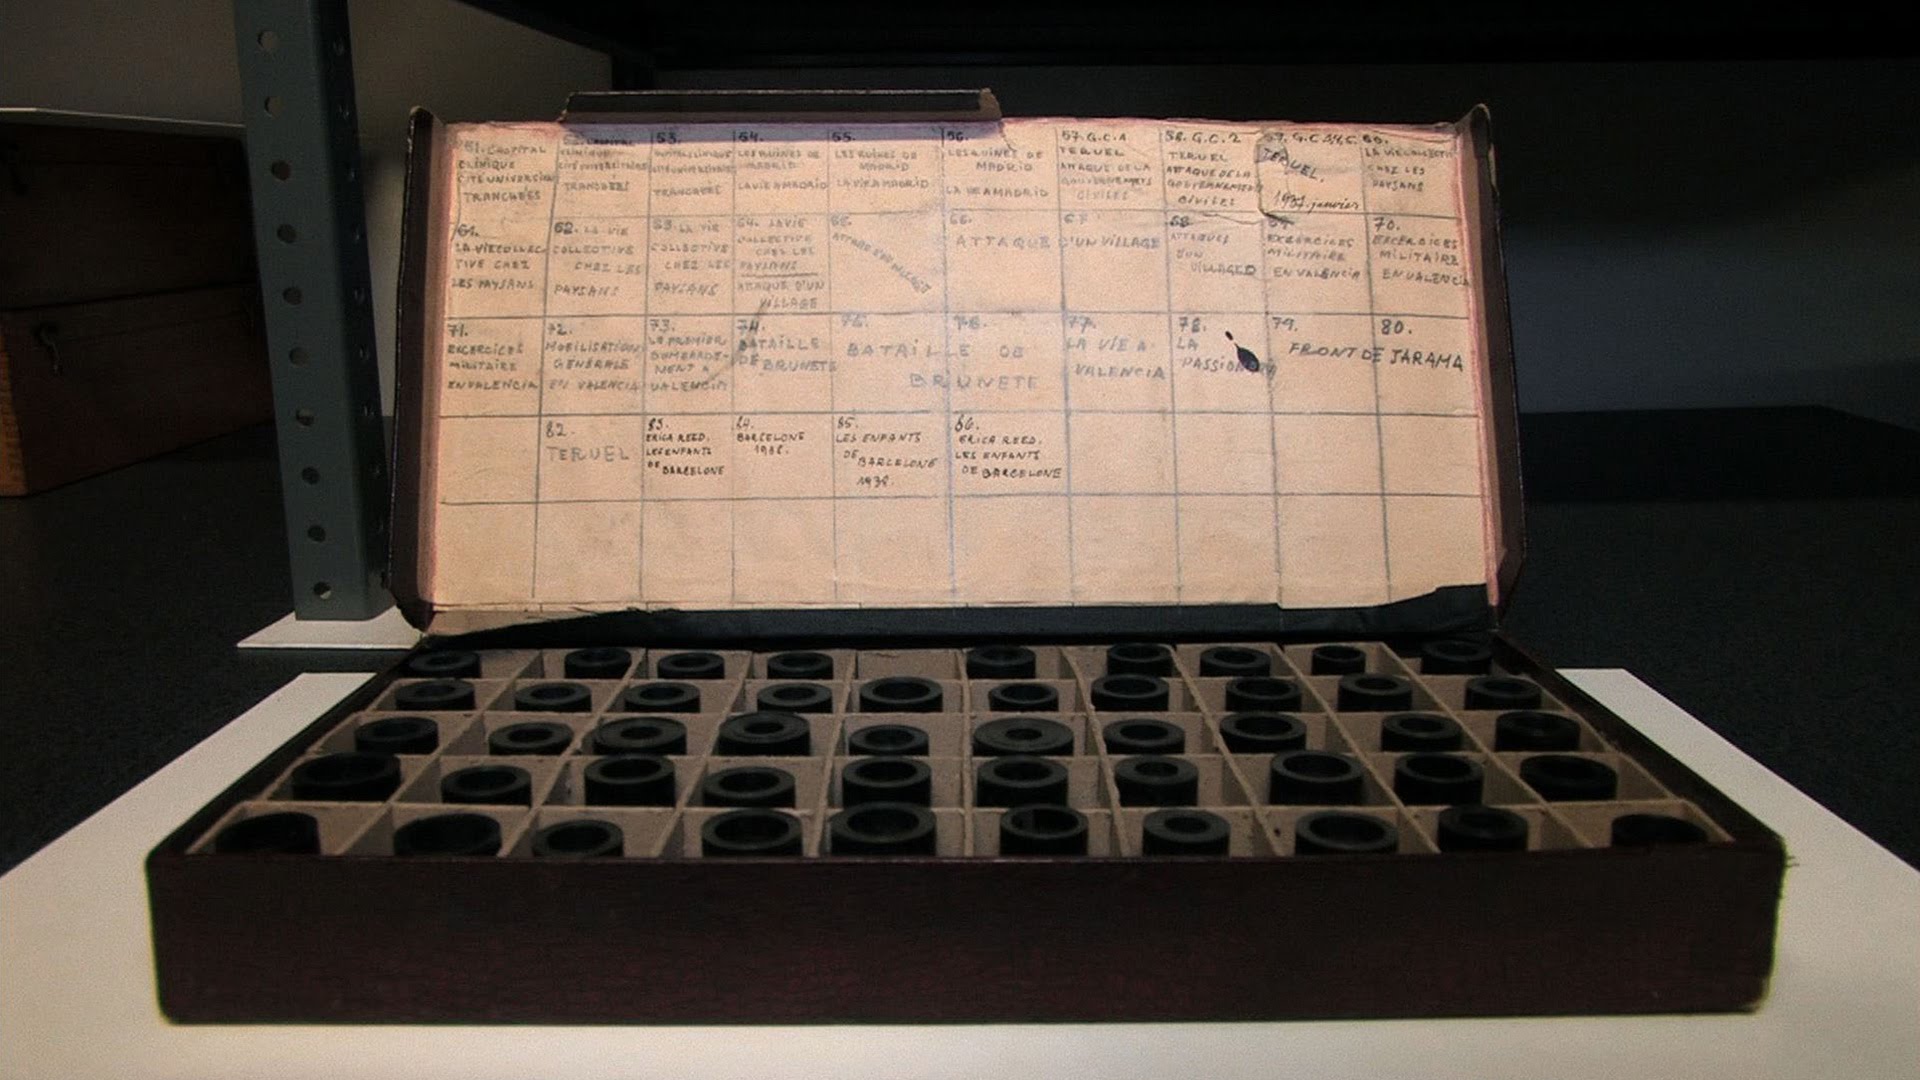 51. L'HOPITAL
CLINIQUE
CITÉ UNIVERSI
TRANCHÉES
TRANCHÉES
53.
TRANCHÉES
54.
LES RUINES DE
MADRID
LA VIE A MADRID
55.
LES RUINES DE
MADRID
LA VIE A MADRID
56.
LES RUINES DE
MADRID
LA VIE A MADRID
57. G.C.1
TERUEL
ATTAQUE DE LA
CIVILES
58. G.C. 2
TERUEL
ATTAQUE DE LA
CIVILES
59. G.C 3/4, C.
TERUEL.
1937. janvier
60.
LA VIE COLLECTI
CHEZ LES
PAYSANS
61.
LA VIE COLLEC
TIVE CHEZ
LES PAYSANS.
62. LA VIE
COLLECTIVE
CHEZ LES
PAYSANS
63. LA VIE
COLLECTIVE
CHEZ LES
PAYSANS
64. LA VIE
COLLECTIVE
CHEZ LES
PAYSANS
ATTAQUE D'UN
VILLAGE
65.
66.
67
ATTAQUE D'UN VILLAGE
68
ATTAQUES
D'UN
VILLAGED
69
EXCERCICES
MILITAIRE
EN VALENCIA
70.
EXCERCICES
MILITAIRE
EN VALENCIA
71.
EXCERCICES
MILITAIRE
EN VALENCIA
72.
MOBILISATION
GENERALE
EN VALENCIA
73.
LE PREMIER
BOMBARDE-
MENT A
VALENCIA
74.
BATAILLE
DE BRUNETE
75.
76.
BATAILLE DE
BRUNETE
77.
LA VIE A
VALENCIA
78.
LA
PASSIONARIA
79.
80.
FRONT DE JARAMA
82.
TERUEL
83.
ERICA REED.
LES ENFANTS
DE BARCELONE
84.
BARCELONE
1938.
85.
LES ENFANTS
DE BARCELONE
1938.
86.
ERICA REED.
LES ENFANTS
DE BARCELONE